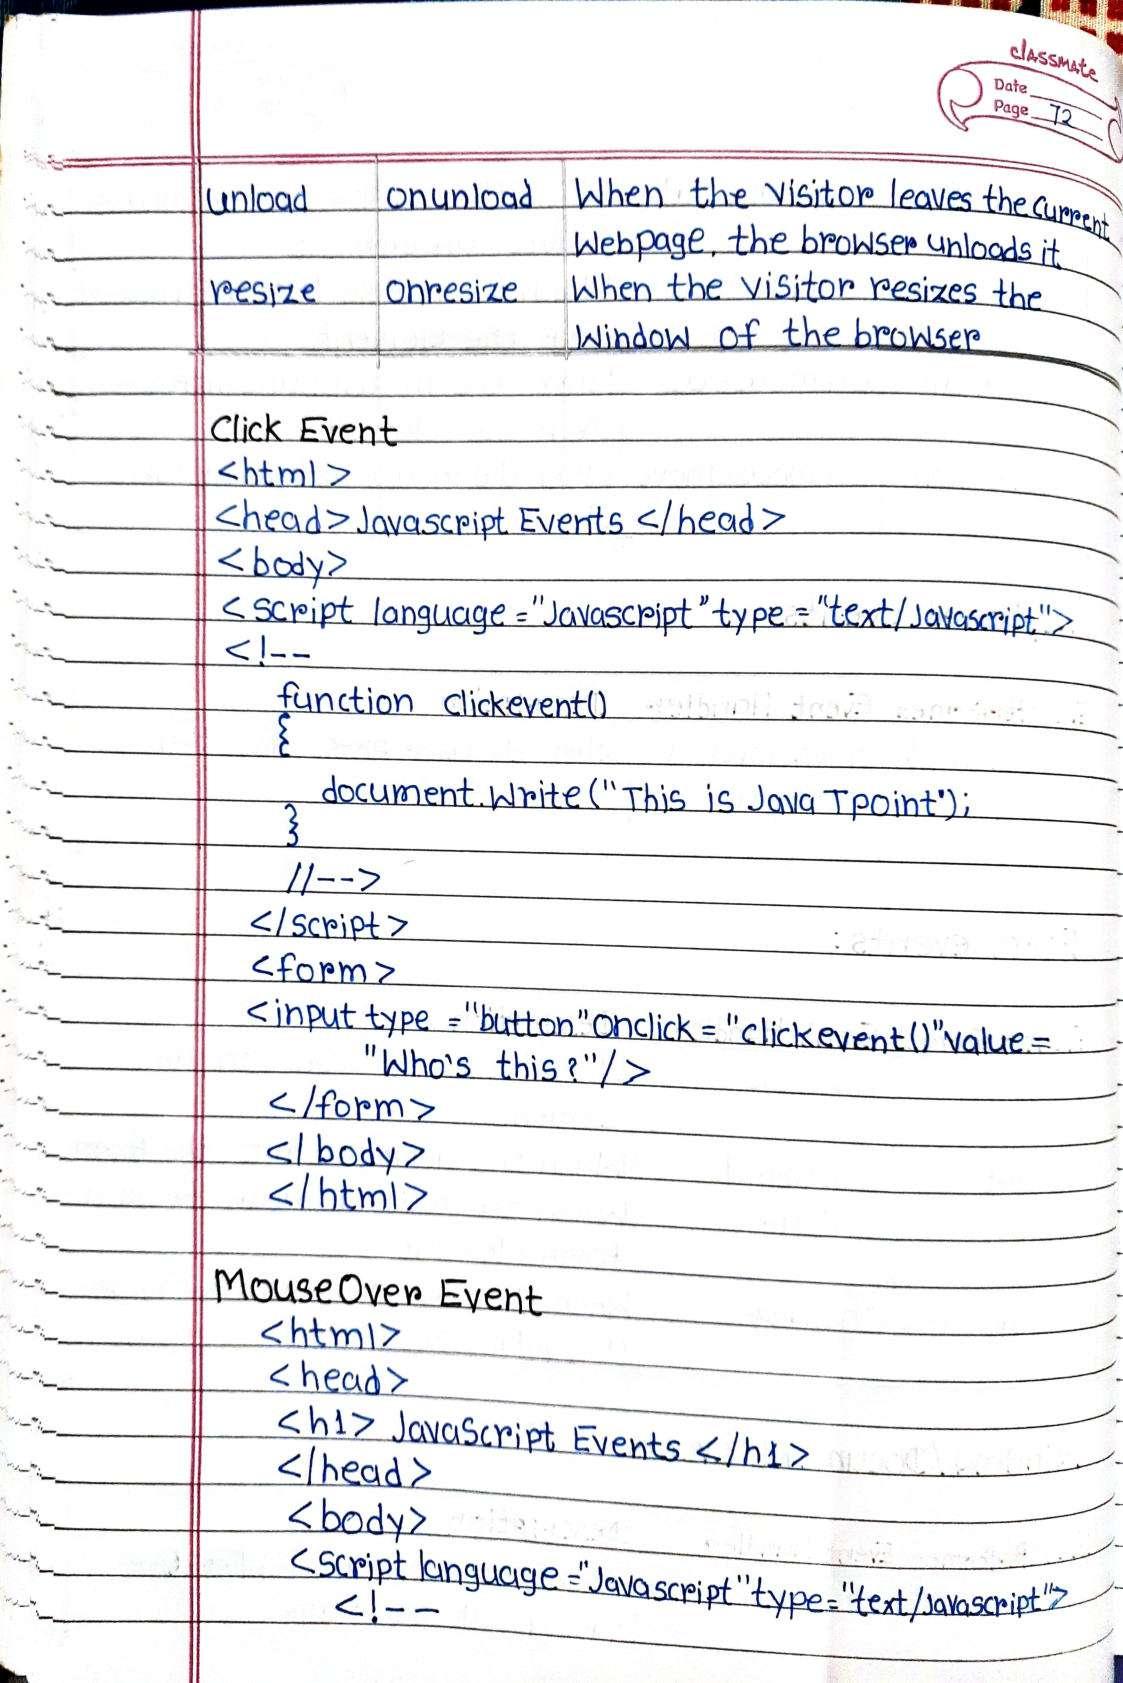 classmate
Date
Page 72
unload onunload When the visitor leaves the current
Webpage, the browser unloads it
resize onresize When the visitor resizes the
Window of the browser
Click Event
<html>
<head> Javascript Events </head>
<body>
<script language="Javascript" type="text/Javascript">
<!--
function clickevent()
{
document.write("This is JavaTpoint");
}
//-->
</script>
<form>
<input type="button" onclick="clickevent()" value=
"Who's this?"/>
</form>
</body>
</html>
MouseOver Event
<html>
<head>
<h1> JavaScript Events </h1>
</head>
<body>
<script language="Javascript" type="text/Javascript">
<!--